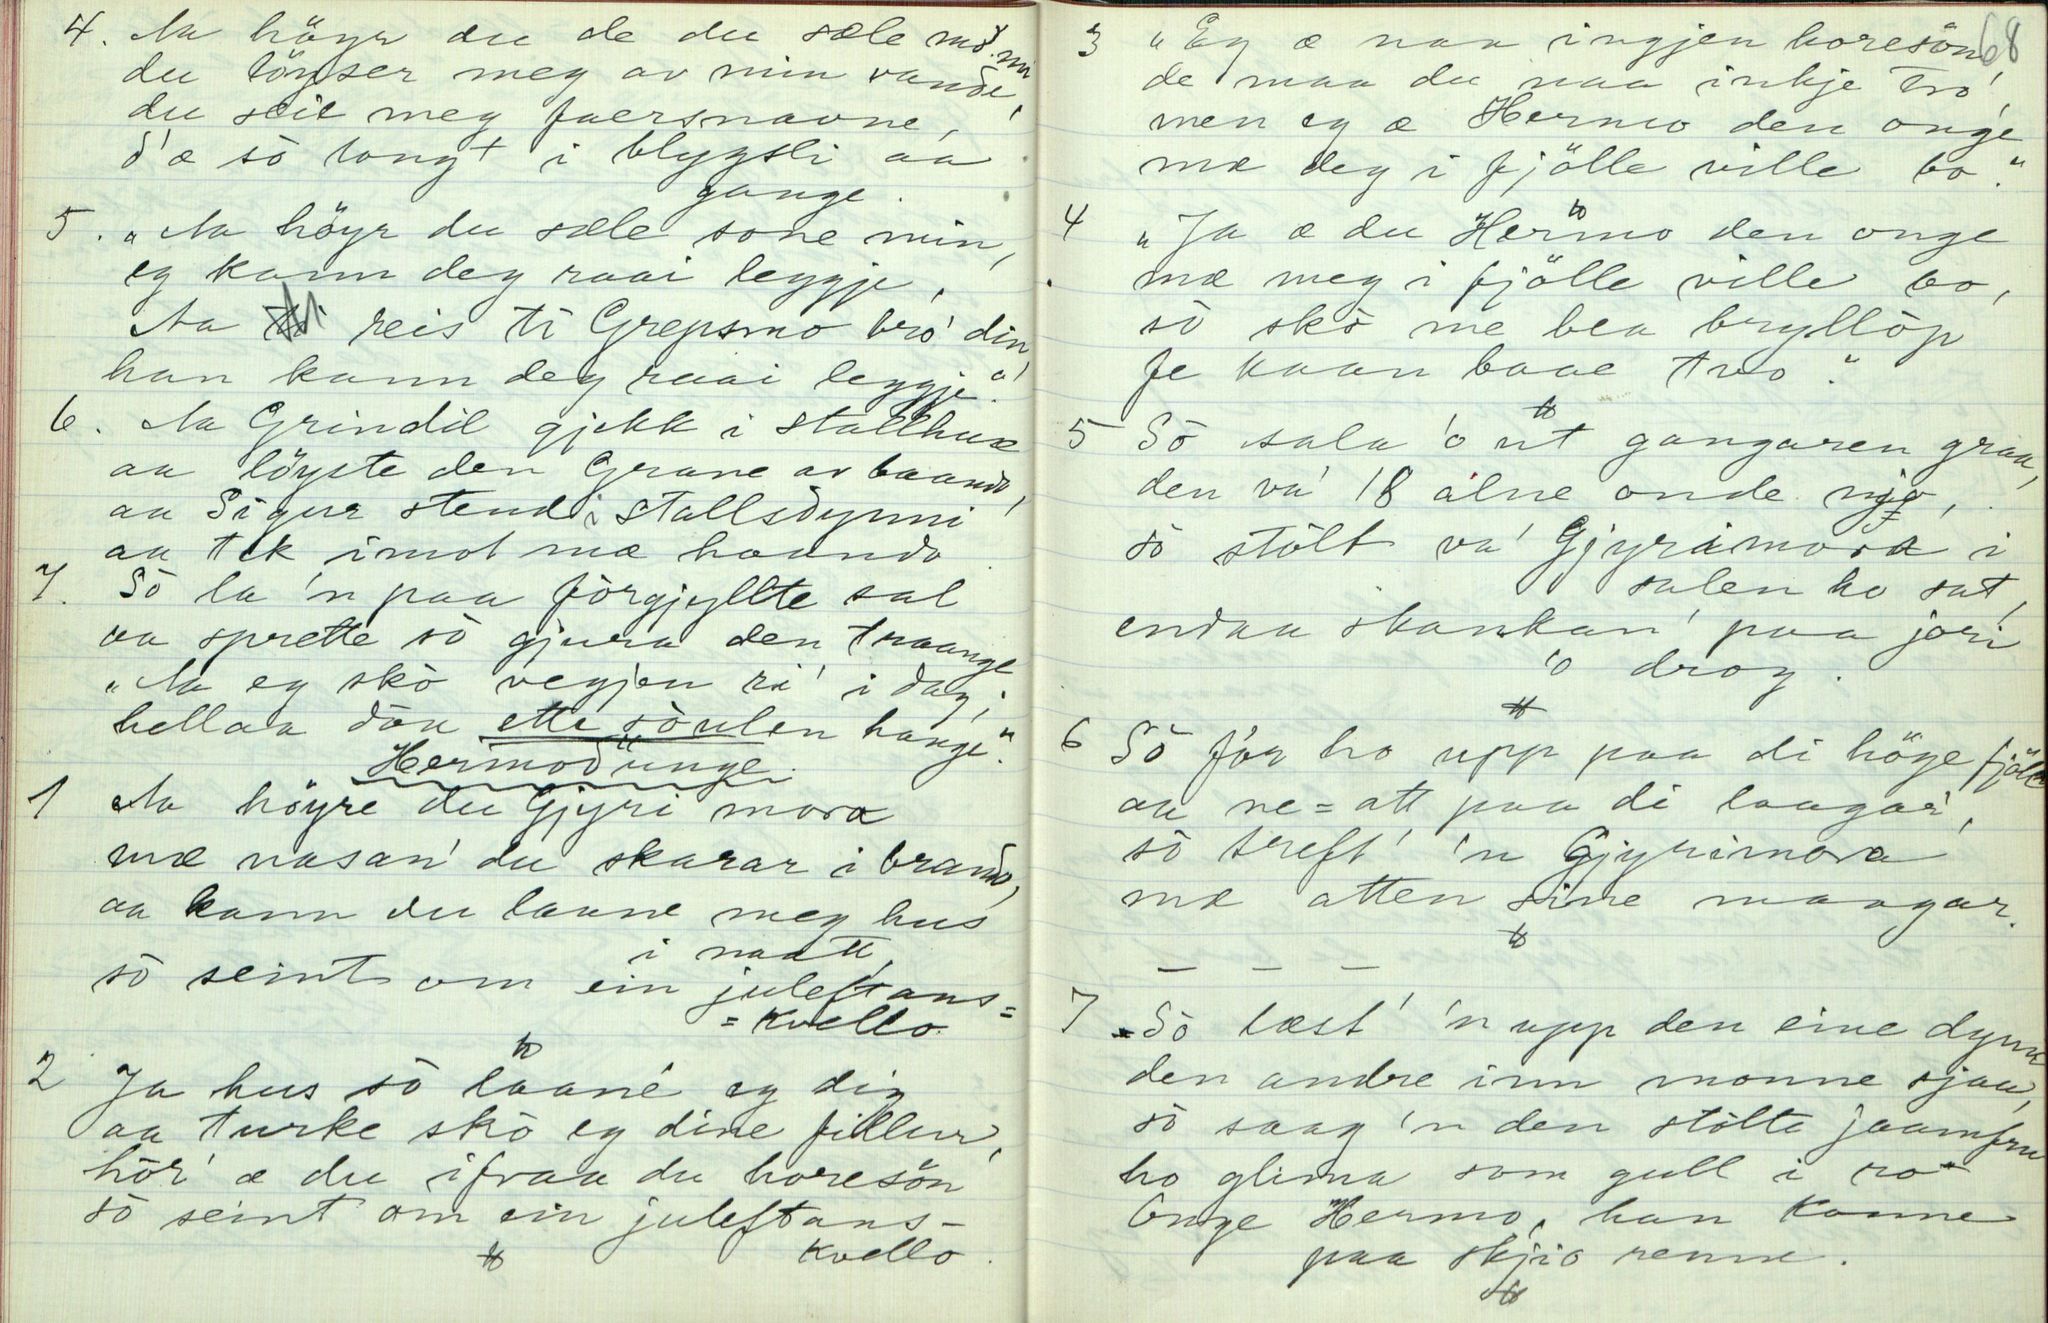 4. Aa höyr du de du sæle mo'. mi
du löyser meg av min vande,
du seie meg faersnavne,
d'æ so langt i blygsli aa
gange.
5. „Aa höyr du sæle sone min,
eg kann deg raai leggje,
Aa reis ti Grepsmo bro' din,
han kann deg raai leggje."
6. Aa Grindil gjekk i stallhuse
aa löyste den Grane av baando,
aa Sigur stend i stallsdynni
aa tek imot mæ haando.
7. So la 'n paa förgjyllte sal
aa sprette so gjura den traange
„Aa eg sko vegjen ri' i dag,
hellaa daa ette soulen hange."
Hermod unge.
1 Aa höyre du Gjyri mora
mæ nasan' du skarar i brando,
aa kann du laane meg hus
i naatt,
so seint om ein juleftans=
=kvello.
2 Ja hus so laane' eg dig
aa turke sko eg dine fillur,
hor' æ du ifraa du horesön
so seint om ein juleftans-
kvello.
68
3 „Eg æ naa ingjen horesön,
de maa du naa inkje tro',
men eg æ Hermo den onge
mæ deg i fjölle ville bo."
4 „Ja æ du Hermo den onge
mæ meg i fjölle ville bo,
so sko me bea bryllöp
fe kaan baae tvo."
5 So sala 'o ut gangaren graa,
den va' 18 alne onde njo,
so stolt va' Gjyrimora i
salen ho sat,
endaa skankan' paa jori
'o drog.
6 So för ho upp paa di höge fjölle
aa ne=att paa di laagar',
so treft' 'n Gjyrimora
mæ atten sine maagar.
— — —
7 So læst' 'n upp den eine dynn
den andre inn monne sjaa,
so saag 'n den stolte jaamfru
ho glima som gull i ro
Onge Hermo, han konne
paa skjio renne.